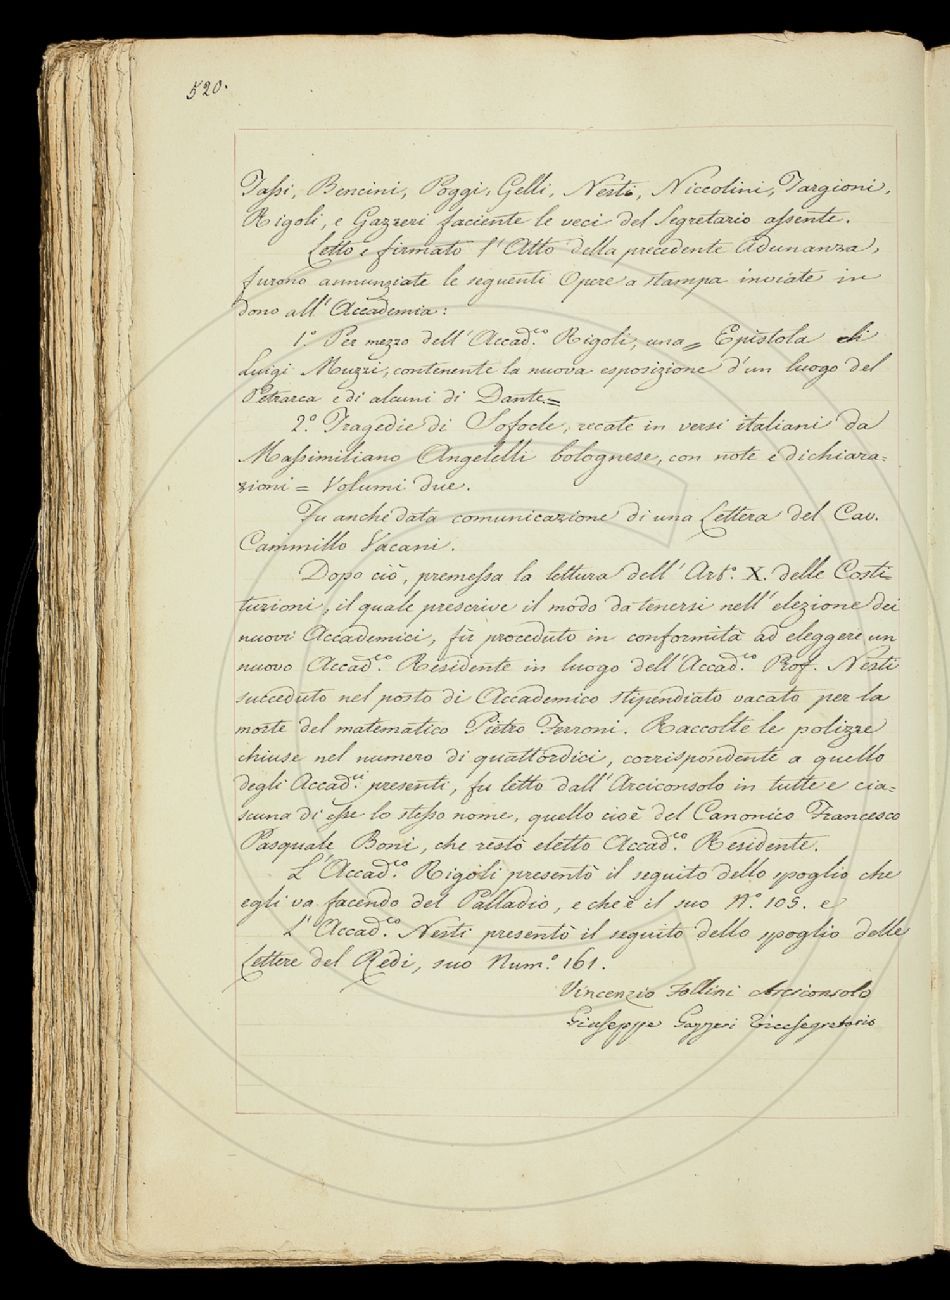 520.
Tassi, Bencini, Poggi, Gelli, Nesti, Niccolini, Targioni,
Rigoli, e Gazzeri faciente le veci del Segretario assente.
Letto e firmato l'Atto della precedente Adunanza,
furono annunziate le seguenti Opere a stampa inviate in
dono all'Accademia:
1.° Per mezzo dell'Accad.co Rigoli, una = Epistola di
Luigi Muzzi, contenente la nuova esposizione d'un luogo del
Petrarca e di alcuni di Dante =
2.° Tragedie di Sofocle, recate in versi italiani da
Massimiliano Angelelli bolognese, con note e dichiara=
zioni = Volumi due.
Fu anche data comunicazione di una Lettera del Cav.
Cammillo Vacani.
Dopo ciò, premessa la lettura dell'Art.° X. delle Costi=
tuzioni, il quale prescrive il modo da tenersi nell'elezione dei
nuovi Accademici, fù proceduto in conformità ad eleggere un
nuovo Accad.co Residente in luogo dell'Accad.co Prof. Nesti
succeduto nel posto di Accademico stipendiato vacato per la
morte del matematico Pietro Ferroni. Raccolte le polizze
chiuse nel numero di quattordici, corrispondente a quello
degli Accad.ci presenti, fu letto dall'Arciconsolo in tutte e cia=
scuna di esse lo stesso nome, quello cioè del Canonico Francesco
Pasquale Boni, che restò eletto Accad.co Residente.
L'Accad.co Rigoli presentò il seguito dello spoglio che
egli va facendo del Palladio, e che è il suo N.° 105. e
L'Accad.co Nesti presentò il seguito dello spoglio delle
Lettere del Redi, suo Num.° 161.
Vincenzio Follini Arciconsolo
Giuseppe Gazzeri Vicesegretario